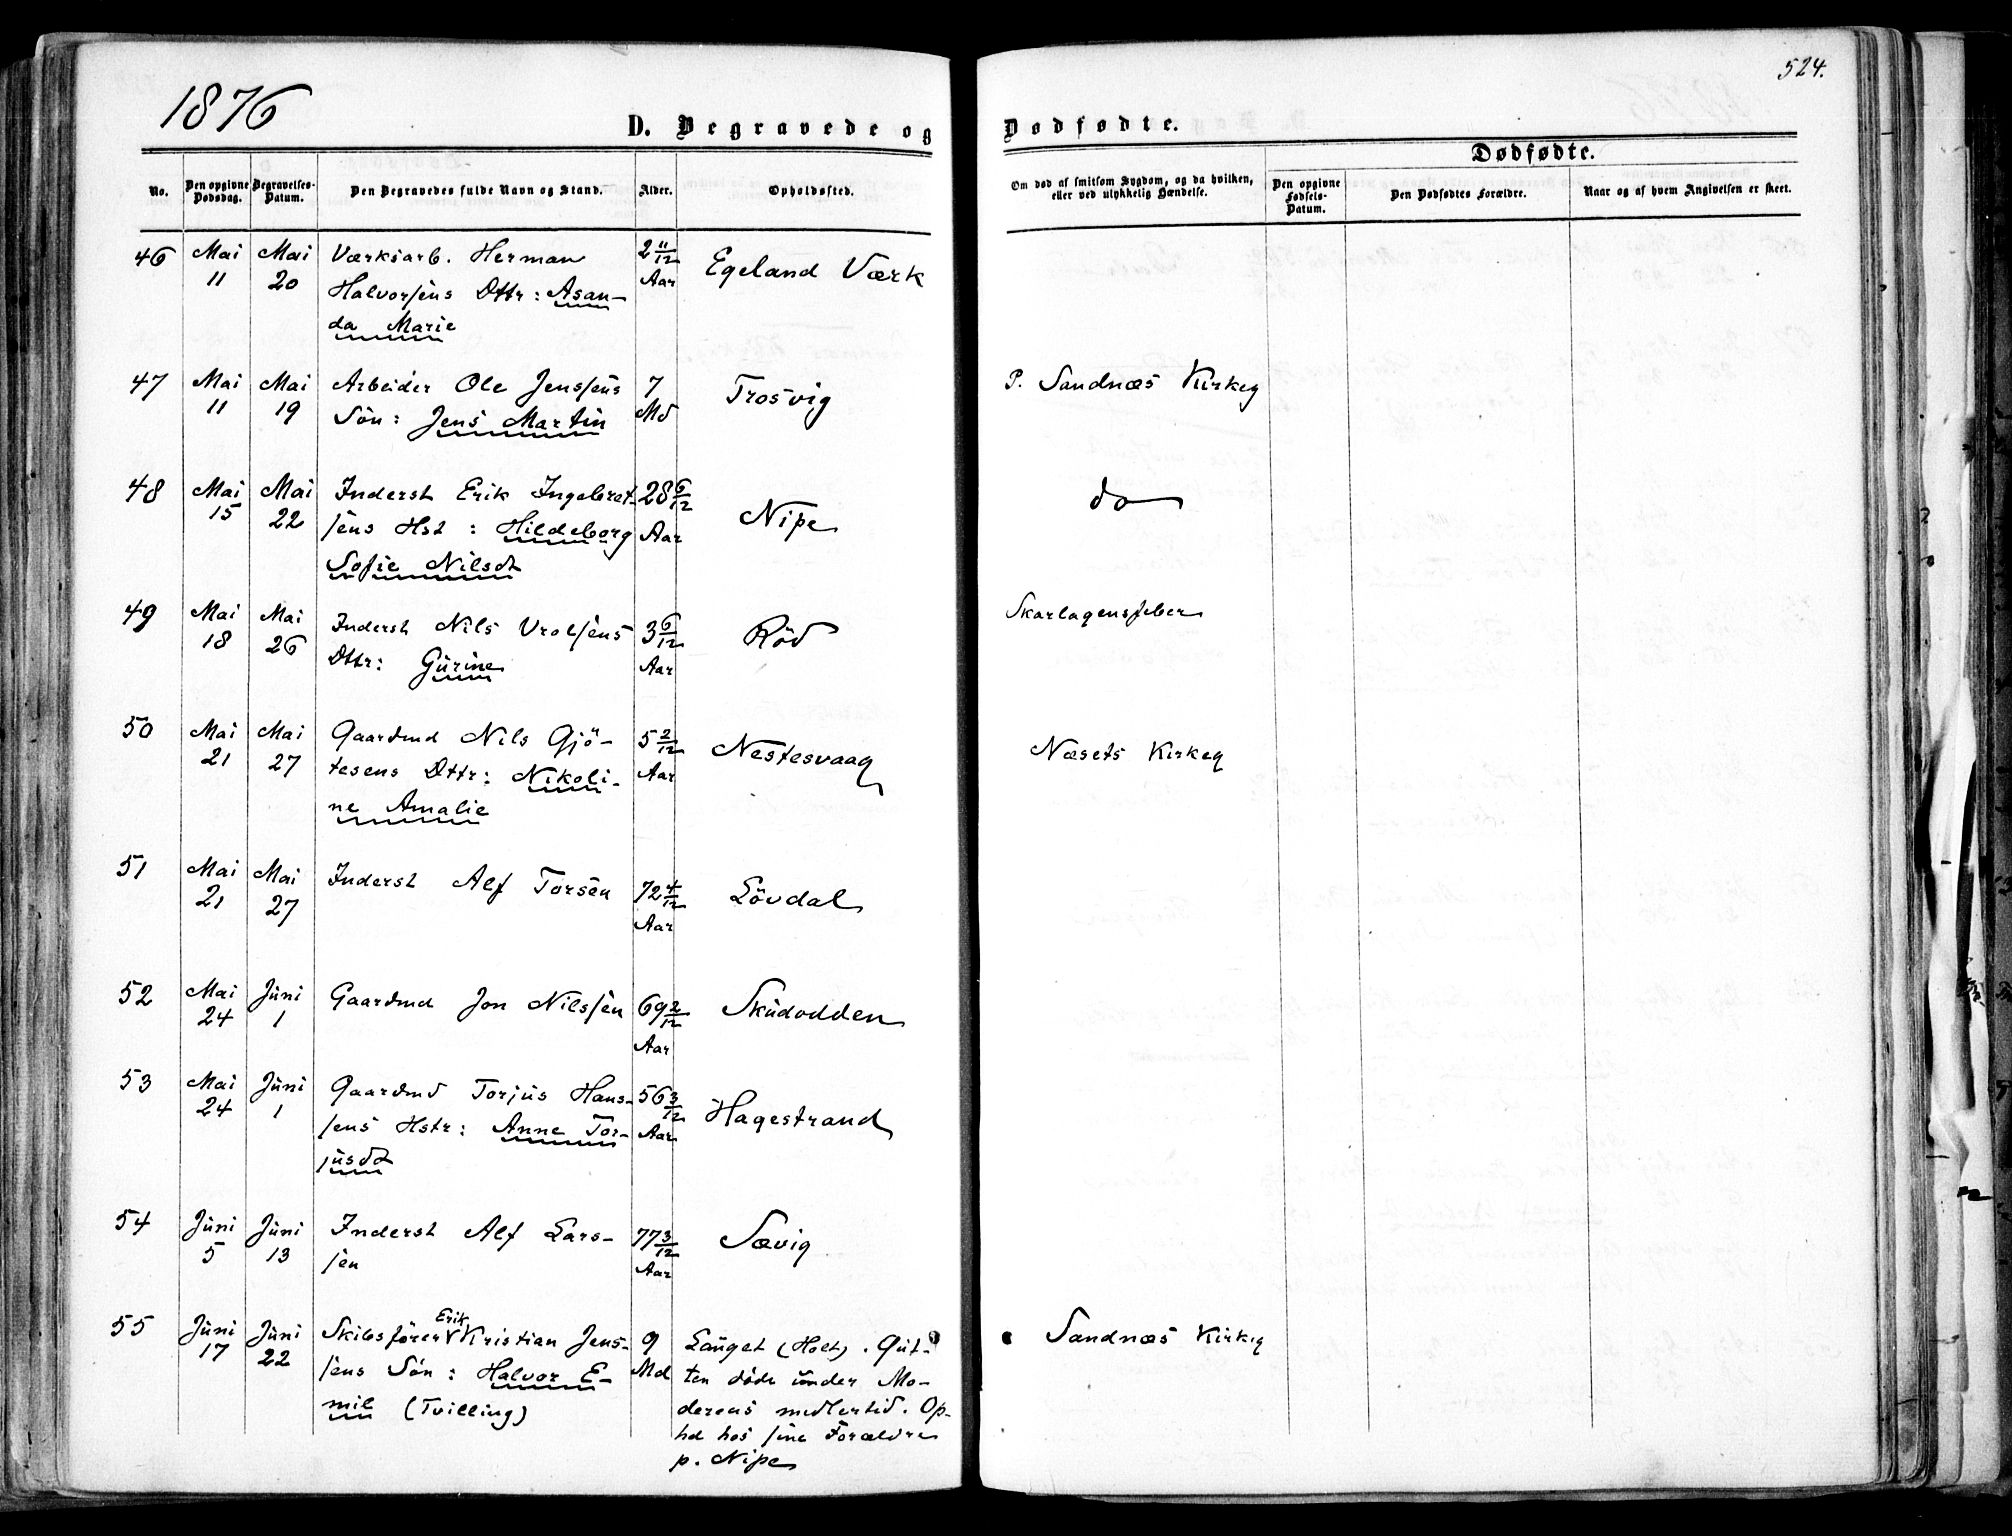 1876
524.
D. Begravede og Dødfødte.
Dødfødte.
No.
Den opgivne Dødsdag.
Begravelses-Datum.
Den Begravedes fulde Navn og Stand.
Alder.
Opholdssted.
Om død af smitsom Sygdom, og da hvilken,
eller ved ulykkelig Hændelse.
Den opgivne Fødsels-Datum.
Den Dødfødtes Forældre.
Naar og af hvem Angivelsen er skeet.
46 Mai Mai Værksarb. Herman 2 11/12 Egeland Værk
11 20 Halvorsens Dttr: Asan- Aar
da Marie
47 Mai Mai Arbeider Ole Jenssens 7 Trosvig P. Sandnæs Kirkeg
11 19 Sön: Jens Martin Md
48 Mai Mai Inderst Erik Ingebret- 28 6/12 Nipe do
15 22 sens Hst: Hildeborg Aar
Sofie Nilsdt
49 Mai Mai Inderst Nils Vrolsens 3 6/12 Röd Skarlagensfeber
18 26 Dttr: Gurine Aar
50 Mai Mai Gaardmd Nils Gjö- 5 2/12 Nestesvaag Næsets Kirkeg
21 27 tesens Dttr: Nikoli- Aar
ne Amalie
51 Mai Mai Inderst Alf Torsen 72 4/12 Lövdal
21 27 Aar
52 Mai Juni Gaardmd Jon Nilssen 69 2/12 Skudodden
24 1 Aar
53 Mai Juni Gaardmd Torjus Hans- 56 3/12 Hagestrand
24 1 sens Hstr: Anne Tor- Aar
jusdt
54 Juni Juni Inderst Alf Lars- 77 3/12 Sævig
5 13 sen Aar
55 Juni Juni Skibsförer Erik Kristian Jens- 9 Lauget (Holt). Gut- Sandnæs Kirkeg
17 22 sens Sön: Halvor E- Md ten döde under Mo-
mil (Tvilling) derens medlertid. Op-
hd hos sine Forældre
p. Nipe